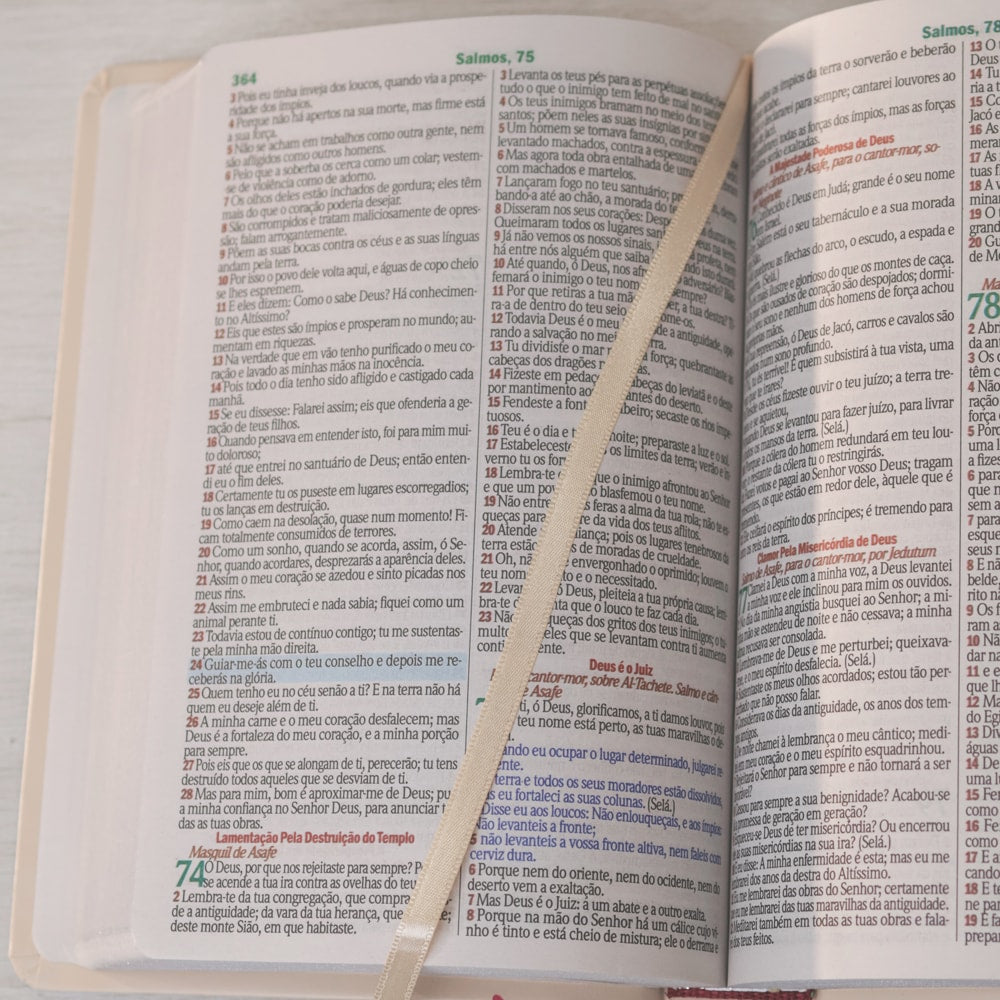 364
Salmos, 75
3 Pois eu tinha inveja dos loucos, quando via a prospe-
ridade dos ímpios.
4 Porque não há apertos na sua morte, mas firme está
a sua força.
5 Não se acham em trabalhos como outra gente, nem
são afligidos como outros homens.
6 Pelo que a soberba os cerca como um colar; vestem-
-se de violência como de adorno.
7 Os olhos deles estão inchados de gordura; eles têm
mais do que o coração poderia desejar.
8 São corrompidos e tratam maliciosamente de opres-
são; falam arrogantemente.
9 Põem as suas bocas contra os céus e as suas línguas
andam pela terra.
10 Por isso o povo dele volta aqui, e águas de copo cheio
se lhes espremem.
11 E eles dizem: Como o sabe Deus? Há conhecimen-
to no Altíssimo?
12 Eis que estes são ímpios e prosperam no mundo; au-
mentam em riquezas.
13 Na verdade que em vão tenho purificado o meu co-
ração e lavado as minhas mãos na inocência.
14 Pois todo o dia tenho sido afligido e castigado cada
manhã.
15 Se eu dissesse: Falarei assim; eis que ofenderia a ge-
ração de teus filhos.
16 Quando pensava em entender isto, foi para mim mui-
to doloroso;
17 até que entrei no santuário de Deus; então enten-
di eu o fim deles.
18 Certamente tu os puseste em lugares escorregadios;
tu os lanças em destruição.
19 Como caem na desolação, quase num momento! Fi-
cam totalmente consumidos de terrores.
20 Como um sonho, quando se acorda, assim, ó Se-
nhor, quando acordares, desprezarás a aparência deles.
21 Assim o meu coração se azedou e sinto picadas nos
meus rins.
22 Assim me embruteci e nada sabia; fiquei como um
animal perante ti.
23 Todavia estou de contínuo contigo; tu me sustentas-
te pela minha mão direita.
24 Guiar-me-ás com o teu conselho e depois me re-
ceberás na glória.
25 Quem tenho eu no céu senão a ti? E na terra não há
quem eu deseje além de ti.
26 A minha carne e o meu coração desfalecem; mas
Deus é a fortaleza do meu coração, e a minha porção
para sempre.
27 Pois eis que os que se alongam de ti, perecerão; tu tens
destruído todos aqueles que se desviam de ti.
28 Mas para mim, bom é aproximar-me de Deus; pu
a minha confiança no Senhor Deus, para anunciar t
das as tuas obras.
Lamentação Pela Destruição do Templo
Masquil de Asafe
74 Ó Deus, por que nos rejeitaste para sempre? P
se acende a tua ira contra as ovelhas do teu
2 Lembra-te da tua congregação, que compra
de a antiguidade; da vara da tua herança, que
deste monte Sião, em que habitaste.
3 Levanta os teus pés para as perpétuas assolações
tudo o que o inimigo tem feito de mal no
4 Os teus inimigos bramam no meio dos
santos; põem neles as suas insígnias por
5 Um homem se tornava famoso, conforme
levantado machados, contra a espessura
6 Mas agora toda obra entalhada de uma
com machados e martelos.
7 Lançaram fogo no teu santuário;
bando-a até ao chão, a morada do te
8 Disseram nos seus corações:
Queimaram todos os lugares san
9 Já não vemos os nossos sinais,
há entre nós alguém que saiba
10 Até quando, ó Deus, nos afr adversário?
femará o inimigo o teu nom sempre?
11 Por que retiras a tua mã a tua destra?
ra-a de dentro do teu seio
12 Todavia Deus é o meu de a antiguidade,
rando a salvação no mei
13 Tu dividiste o mar força; quebrantaste as
cabeças dos dragões
14 Fizeste em pedaç beças do leviatã e o deste
por mantimento ao antes do deserto.
15 Fendeste a font beiro; secaste os rios impe-
tuosos.
16 Teu é o dia e t noite; preparaste a luz e o sol.
17 Estabeleceste os limites da terra; verão e in-
verno tu os for
18 Lembra-te que o inimigo afrontou ao Senhor
e que um pov blasfemou o teu nome.
19 Não entre feras a alma da tua rola; não te es-
queças para re da vida dos teus aflitos.
20 Atende iança; pois os lugares tenebrosos da
terra estão s de moradas de crueldade.
21 Oh, nã envergonhado o oprimido; louvem o
teu nom to e o necessitado.
22 Levan Deus, pleiteia a tua própria causa; lem-
bra-te nta que o louco te faz cada dia.
23 Não queças dos gritos dos teus inimigos; o tu-
multo eles que se levantam contra ti aumenta
conti ente.
Deus é o Juiz
cantor-mor, sobre Al-Tachete. Salmo e cân-
e Asafe
ti, ó Deus, glorificamos, a ti damos louvor, pois
teu nome está perto, as tuas maravilhas o de-
ando eu ocupar o lugar determinado, julgarei re-
ente.
terra e todos os seus moradores estão dissolvidos,
s eu fortaleci as suas colunas. (Selá.)
Disse eu aos loucos: Não enlouqueçais, e aos ímpios:
Não levanteis a fronte;
5 não levanteis a vossa fronte altiva, nem faleis com
cerviz dura.
6 Porque nem do oriente, nem do ocidente, nem do
deserto vem a exaltação.
7 Mas Deus é o Juiz: a um abate e a outro exalta.
8 Porque na mão do Senhor há um cálice cujo vi-
nho é tinto e está cheio de mistura; ele o derrama e
Salmos, 78
os ímpios da terra o sorverão e beberão
declararei para sempre; cantarei louvores ao
todas as forças dos ímpios, mas as forças
serão exaltadas.
A Majestade Poderosa de Deus
e cântico de Asafe, para o cantor-mor, so-
Conhecido é Deus em Judá; grande é o seu nome
Salém está o seu tabernáculo e a sua morada
as flechas do arco, o escudo, a espada e
(Selá.)
mais ilustre e glorioso do que os montes de caça.
são ousados de coração são despojados; dormi-
seu sono e nenhum dos homens de força achou
mãos.
repreensão, ó Deus de Jacó, carros e cavalos são
num sono profundo.
tu és terrível! E quem subsistirá à tua vista, uma
te irares?
os céus fizeste ouvir o teu juízo; a terra tre-
se aquietou,
Deus se levantou para fazer juízo, para livrar
os mansos da terra. (Selá.)
a cólera do homem redundará em teu lou-
restante da cólera tu o restringirás.
votos e pagai ao Senhor vosso Deus; tragam
os que estão em redor dele, àquele que é
ceifará o espírito dos príncipes; é tremendo para
reis da terra.
Clamor Pela Misericórdia de Deus
de Asafe, para o cantor-mor, por Jedutum
Clamei a Deus com a minha voz, a Deus levantei
a minha voz e ele inclinou para mim os ouvidos.
dia da minha angústia busquei ao Senhor; a mi-
se estendeu de noite e não cessava; a minha
recusava ser consolada.
Lembrava-me de Deus e me perturbei; queixava-
e o meu espírito desfalecia. (Selá.)
Sustentaste os meus olhos acordados; estou tão per-
que não posso falar.
Considerava os dias da antiguidade, os anos dos tem-
antigos.
De noite chamei à lembrança o meu cântico; medi-
em meu coração e o meu espírito esquadrinhou.
Rejeitará o Senhor para sempre e não tornará a ser
Cessou para sempre a sua benignidade? Acabou-se
promessa de geração em geração?
Esqueceu-se Deus de ter misericórdia? Ou encerrou
as suas misericórdias na sua ira? (Selá.)
eu disse: A minha enfermidade é esta; mas eu me
lembrarei dos anos da destra do Altíssimo.
me lembrarei das obras do Senhor; certamente
que eu me lembrarei das tuas maravilhas da antiguidade.
Meditarei também em todas as tuas obras e fala-
dos teus feitos.
13 O
Deus
14 Tu
ria a t
15 Co
Jacó e
16 As
mera
17 As
tuas fl
18 A v
minar
19 O
grand
20 Gu
de Mo
Ma
78
2 Abri
da ant
3 Os c
têm c
4 Não
ração
força
5 Porq
uma l
a fizes
6 para
que n
sem a
7 para
esque
seus m
8 E nã
belde,
rito nã
9 Os f
ram as
10 Não
dar na
11 e e
que lh
12 Ma
do Egi
13 Div
águas
14 De
uma l
15 Fen
como
16 Fe
como
17 E a
cando
18 E
ne par
19 E fa
prepar